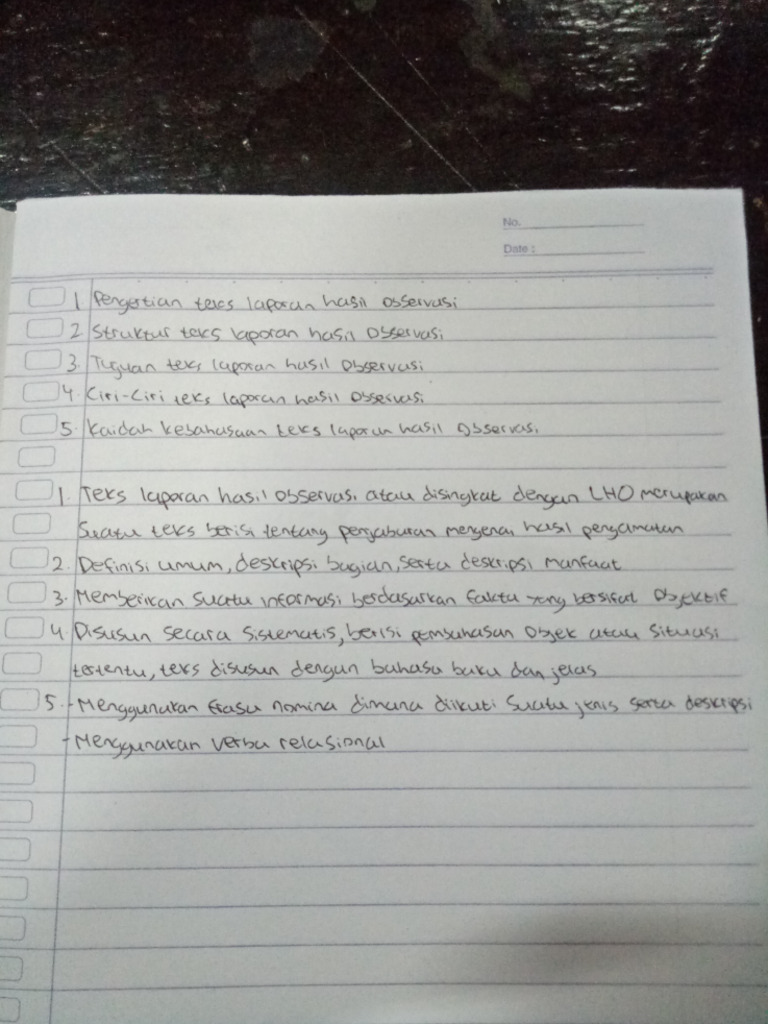 No.
Date :
1 Pengertian teks laporan hasil observasi
2 Struktur teks laporan hasil observasi
3. Tujuan teks laporan hasil observasi
4. Ciri-Ciri teks laporan hasil observasi
5. Kaidah kebahasaan teks laporan hasil observasi
1. Teks laporan hasil observasi atau disingkat dengan LHO merupakan
suatu teks berisi tentang penjabaran mengenai hasil pengamatan
2. Definisi umum, deskripsi bagian, serta deskripsi manfaat
3. Memberikan suatu informasi berdasarkan fakta yang bersifat objektif
4. Disusun secara sistematis, berisi pembahasan objek atau situasi
tertentu, teks disusun dengan bahasa baku dan jelas
5. - Menggunakan frasa nomina dimana diikuti suatu jenis serta deskripsi
- Menggunakan verba relasional